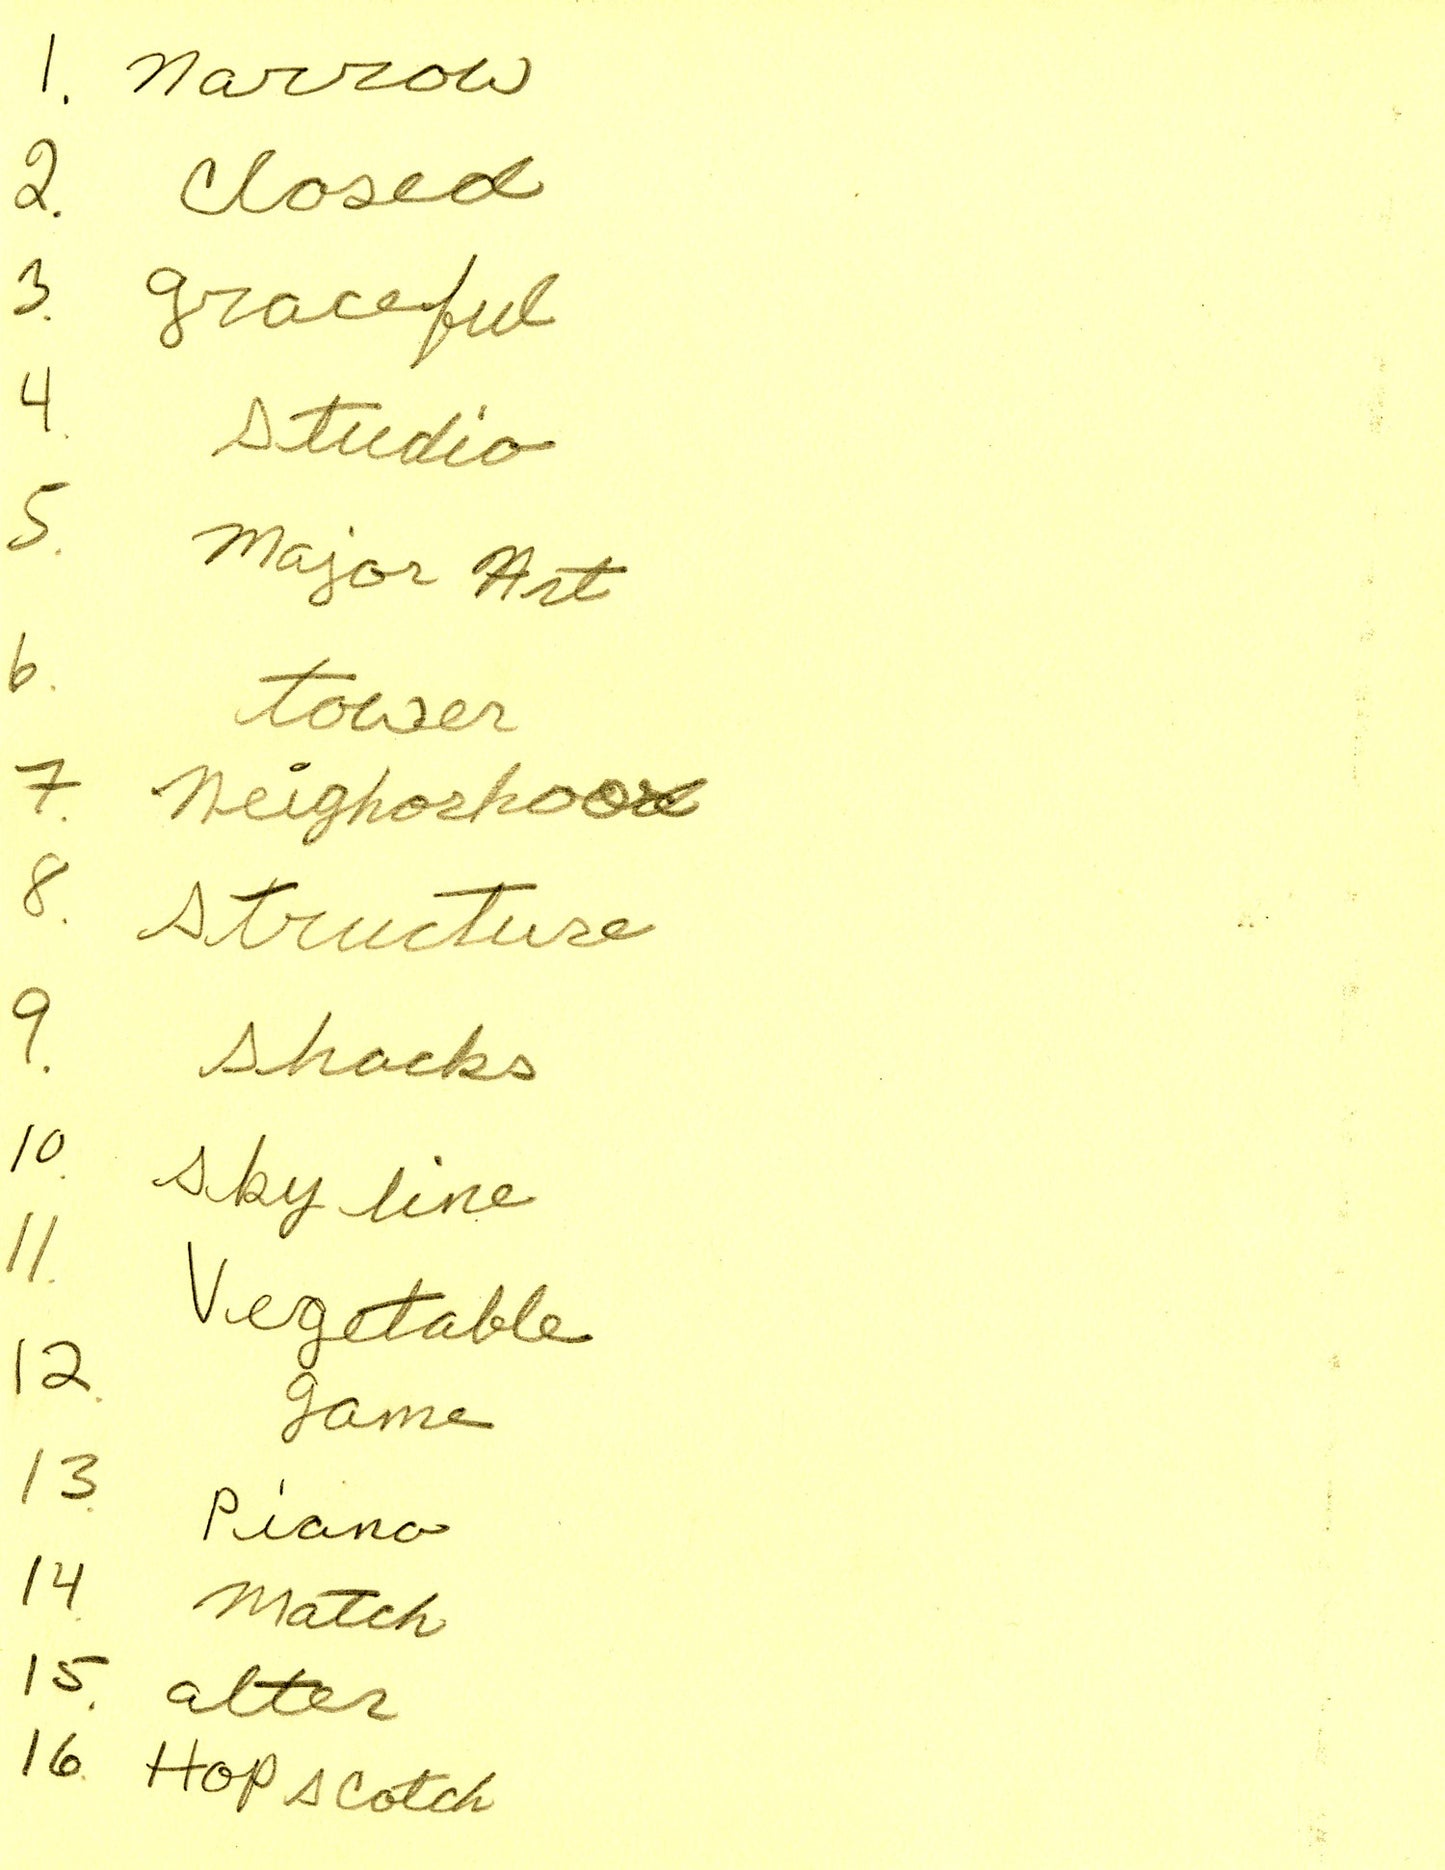 1. Narrow
2. Closed
3. graceful
4. Studio
5. Major Art
6. tower
7. Neighorhood
8. Structure
9. Shacks
10. Sky line
11. Vegetable
12. game
13. Piano
14. Match
15. alter
16. Hop scotch